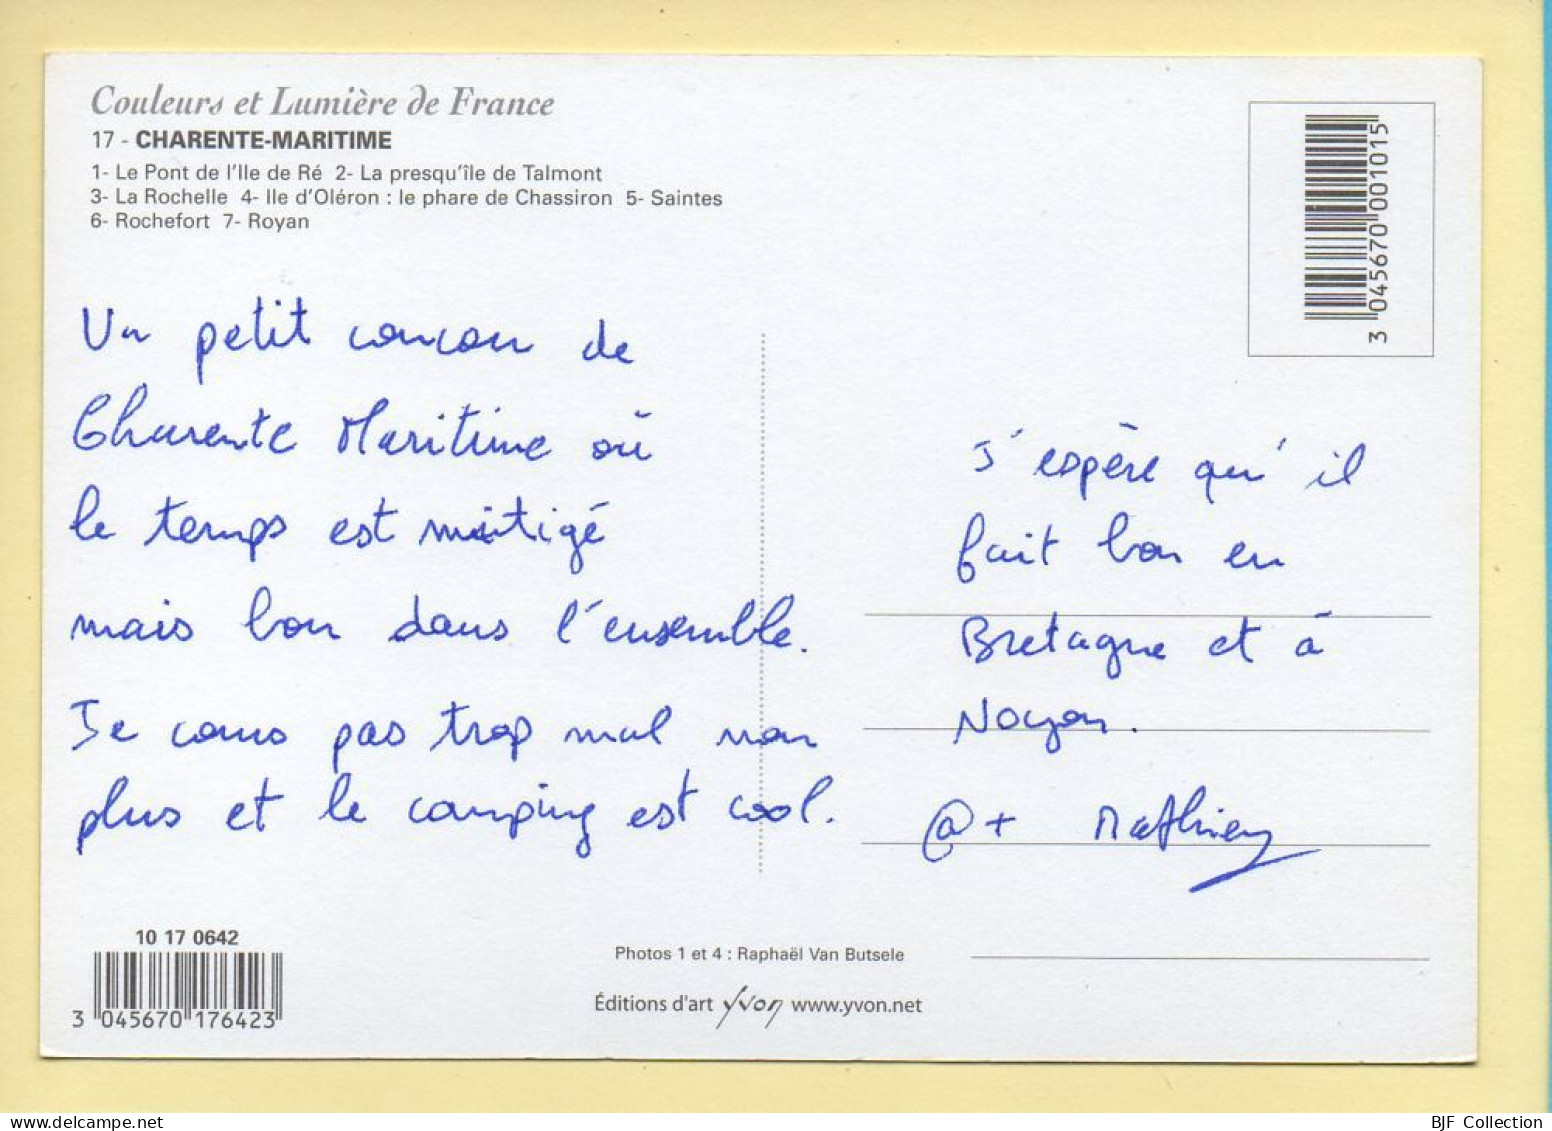 Couleurs et Lumière de France
17 - CHARENTE-MARITIME
1- Le Pont de l'Ile de Ré 2- La presqu'île de Talmont
3- La Rochelle 4- Ile d'Oléron : le phare de Chassiron 5- Saintes
6- Rochefort 7- Royan
3 045670 001015
Un petit coucou de
Charente Maritime où
le temps est mitigé
mais bon dans l'ensemble.
Je cours pas trop mal non
plus et le camping est cool.
J'espère qu'il
fait bon en
Bretagne et à
Noyon.
@+ Mathieu
10 17 0642
3 045670 176423
Photos 1 et 4 : Raphaël Van Butsele
Éditions d'art Yvon www.yvon.net
BJF Collection